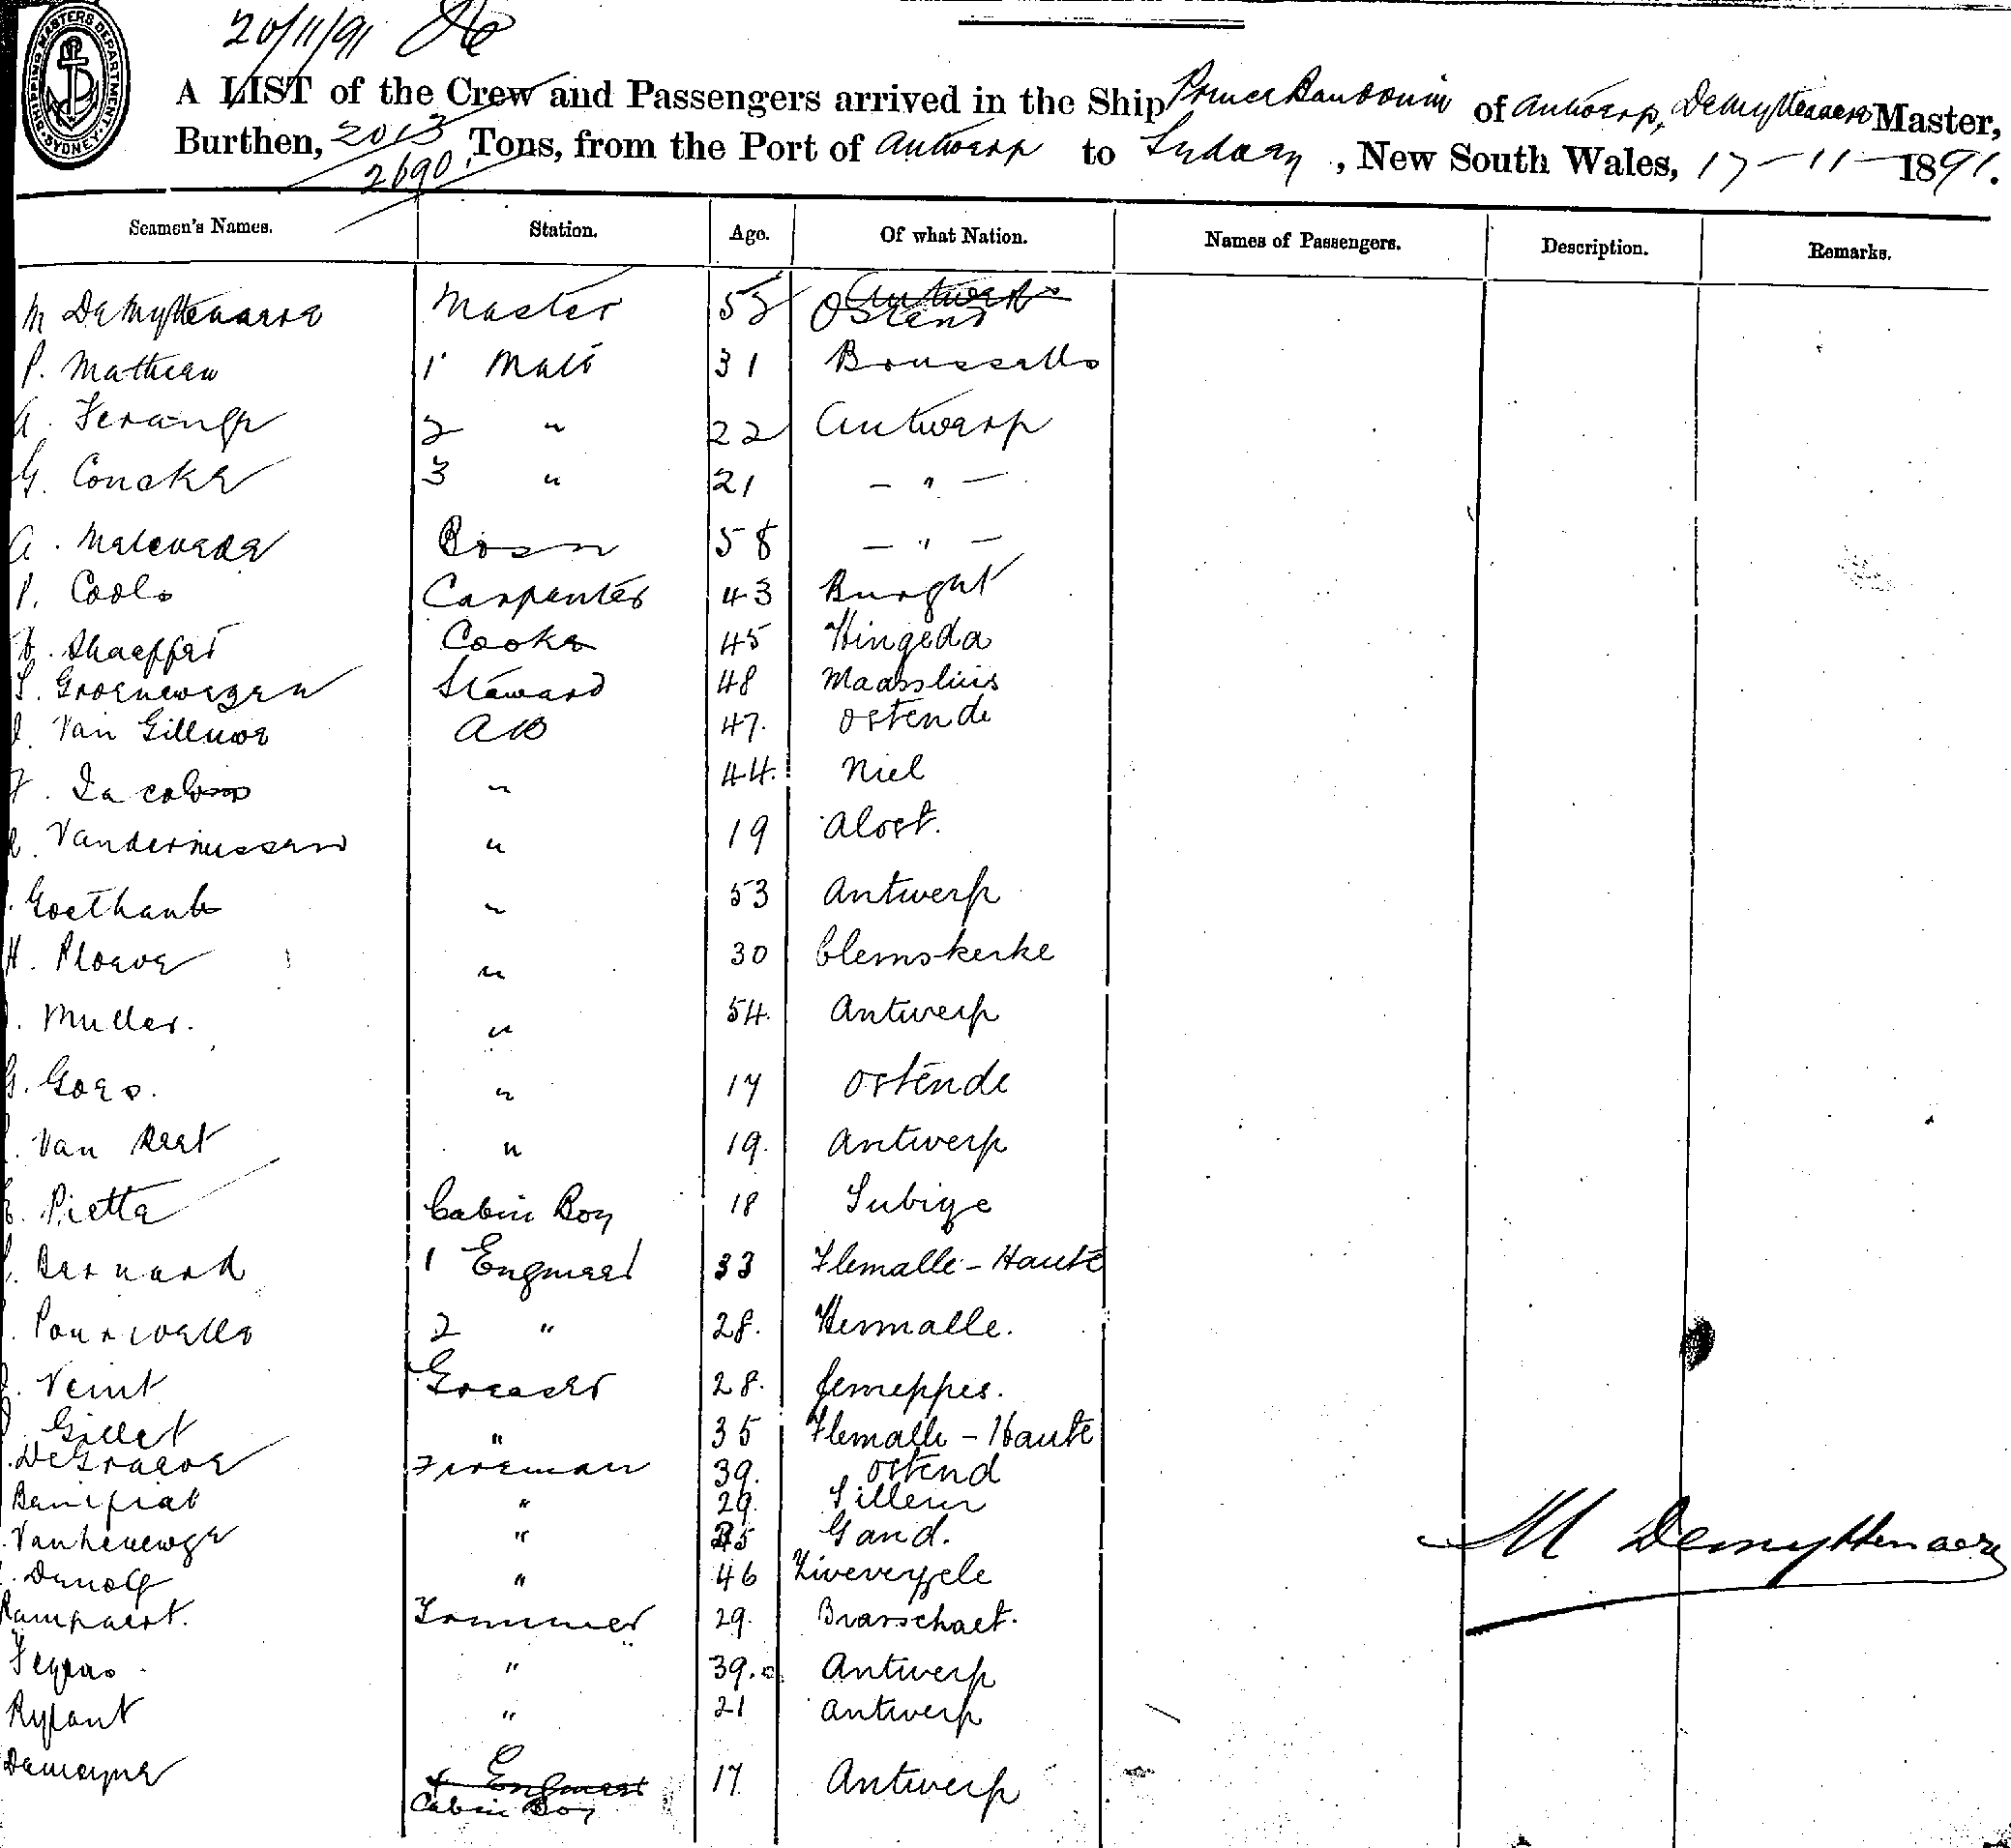 20/11/91
SHIPPING MASTERS DEPARTMENT. SYDNEY.
A LIST of the Crew and Passengers arrived in the Ship Prince Baudouin of Antwerp, Demyttenaere Master,
Burthen, 2013 Tons, from the Port of Antwerp to Sydney, New South Wales, 17-11-1891.
2690
Seamen's Names. Station. Age. Of what Nation. Names of Passengers. Description. Remarks.
M Demyttenaere Master 53 Antwerp Ostend
P. Mathieu 1 Mate 31 Brussells
A. 2 " 22 Antwerp
G. Concke 3 " 21 - " -
A. Bosn 58 - " -
P. Cools Carpenter 43 Burght
Shaeffer Cooke 45 Hingeda
Groenewegen Steward 48 Maassluis
Van Gilluwe AB 47. Ostende
F. Jacobs " 44. Niel
Vandermissen " 19 Alost.
Goethals " 53 Antwerp
H. Ploeve " 30 Clemskerke
Muller. " 54. Antwerp
G. Goes. " 17 Ostende
Van Reet " 19. Antwerp
Piette Cabin Boy 18 Lubize
Bernard 1 Engineer 33 Flemalle-Haute
2 " 28. Hermalle.
Veint Greaser 28. Jemeppes.
Gillet " 35 Flemalle-Haute
DeGraeve Fireman 39. Ostend
" 29. Tilleur
" 35 Gand.
" 46
Rampaert. Trimmer 29. Brasschaet.
" 39. Antwerp
Rypant " 21 Antwerp
1 Engineer 17 Antwerp
Cabin Boy
M Demyttenaere